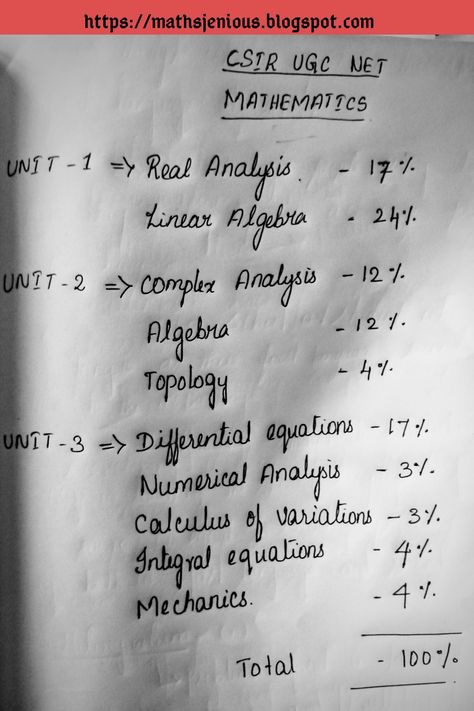 https://mathsjenious.blogspot.com
CSIR UGC NET
MATHEMATICS
UNIT-1 => Real Analysis - 17%
Linear Algebra - 24%
UNIT-2 => Complex Analysis - 12%
Algebra - 12%
Topology - 4%
UNIT-3 => Differential equations - 17%
Numerical Analysis - 3%
Calculus of variations - 3%
Integral equations - 4%
Mechanics. - 4%
Total - 100%